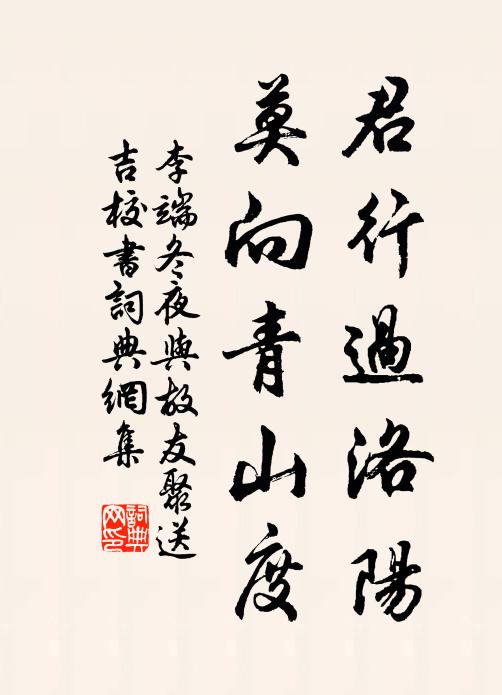 君行過洛陽
莫向青山度
李端冬夜與故友聚送
吉校書詞典網集
詞典網印